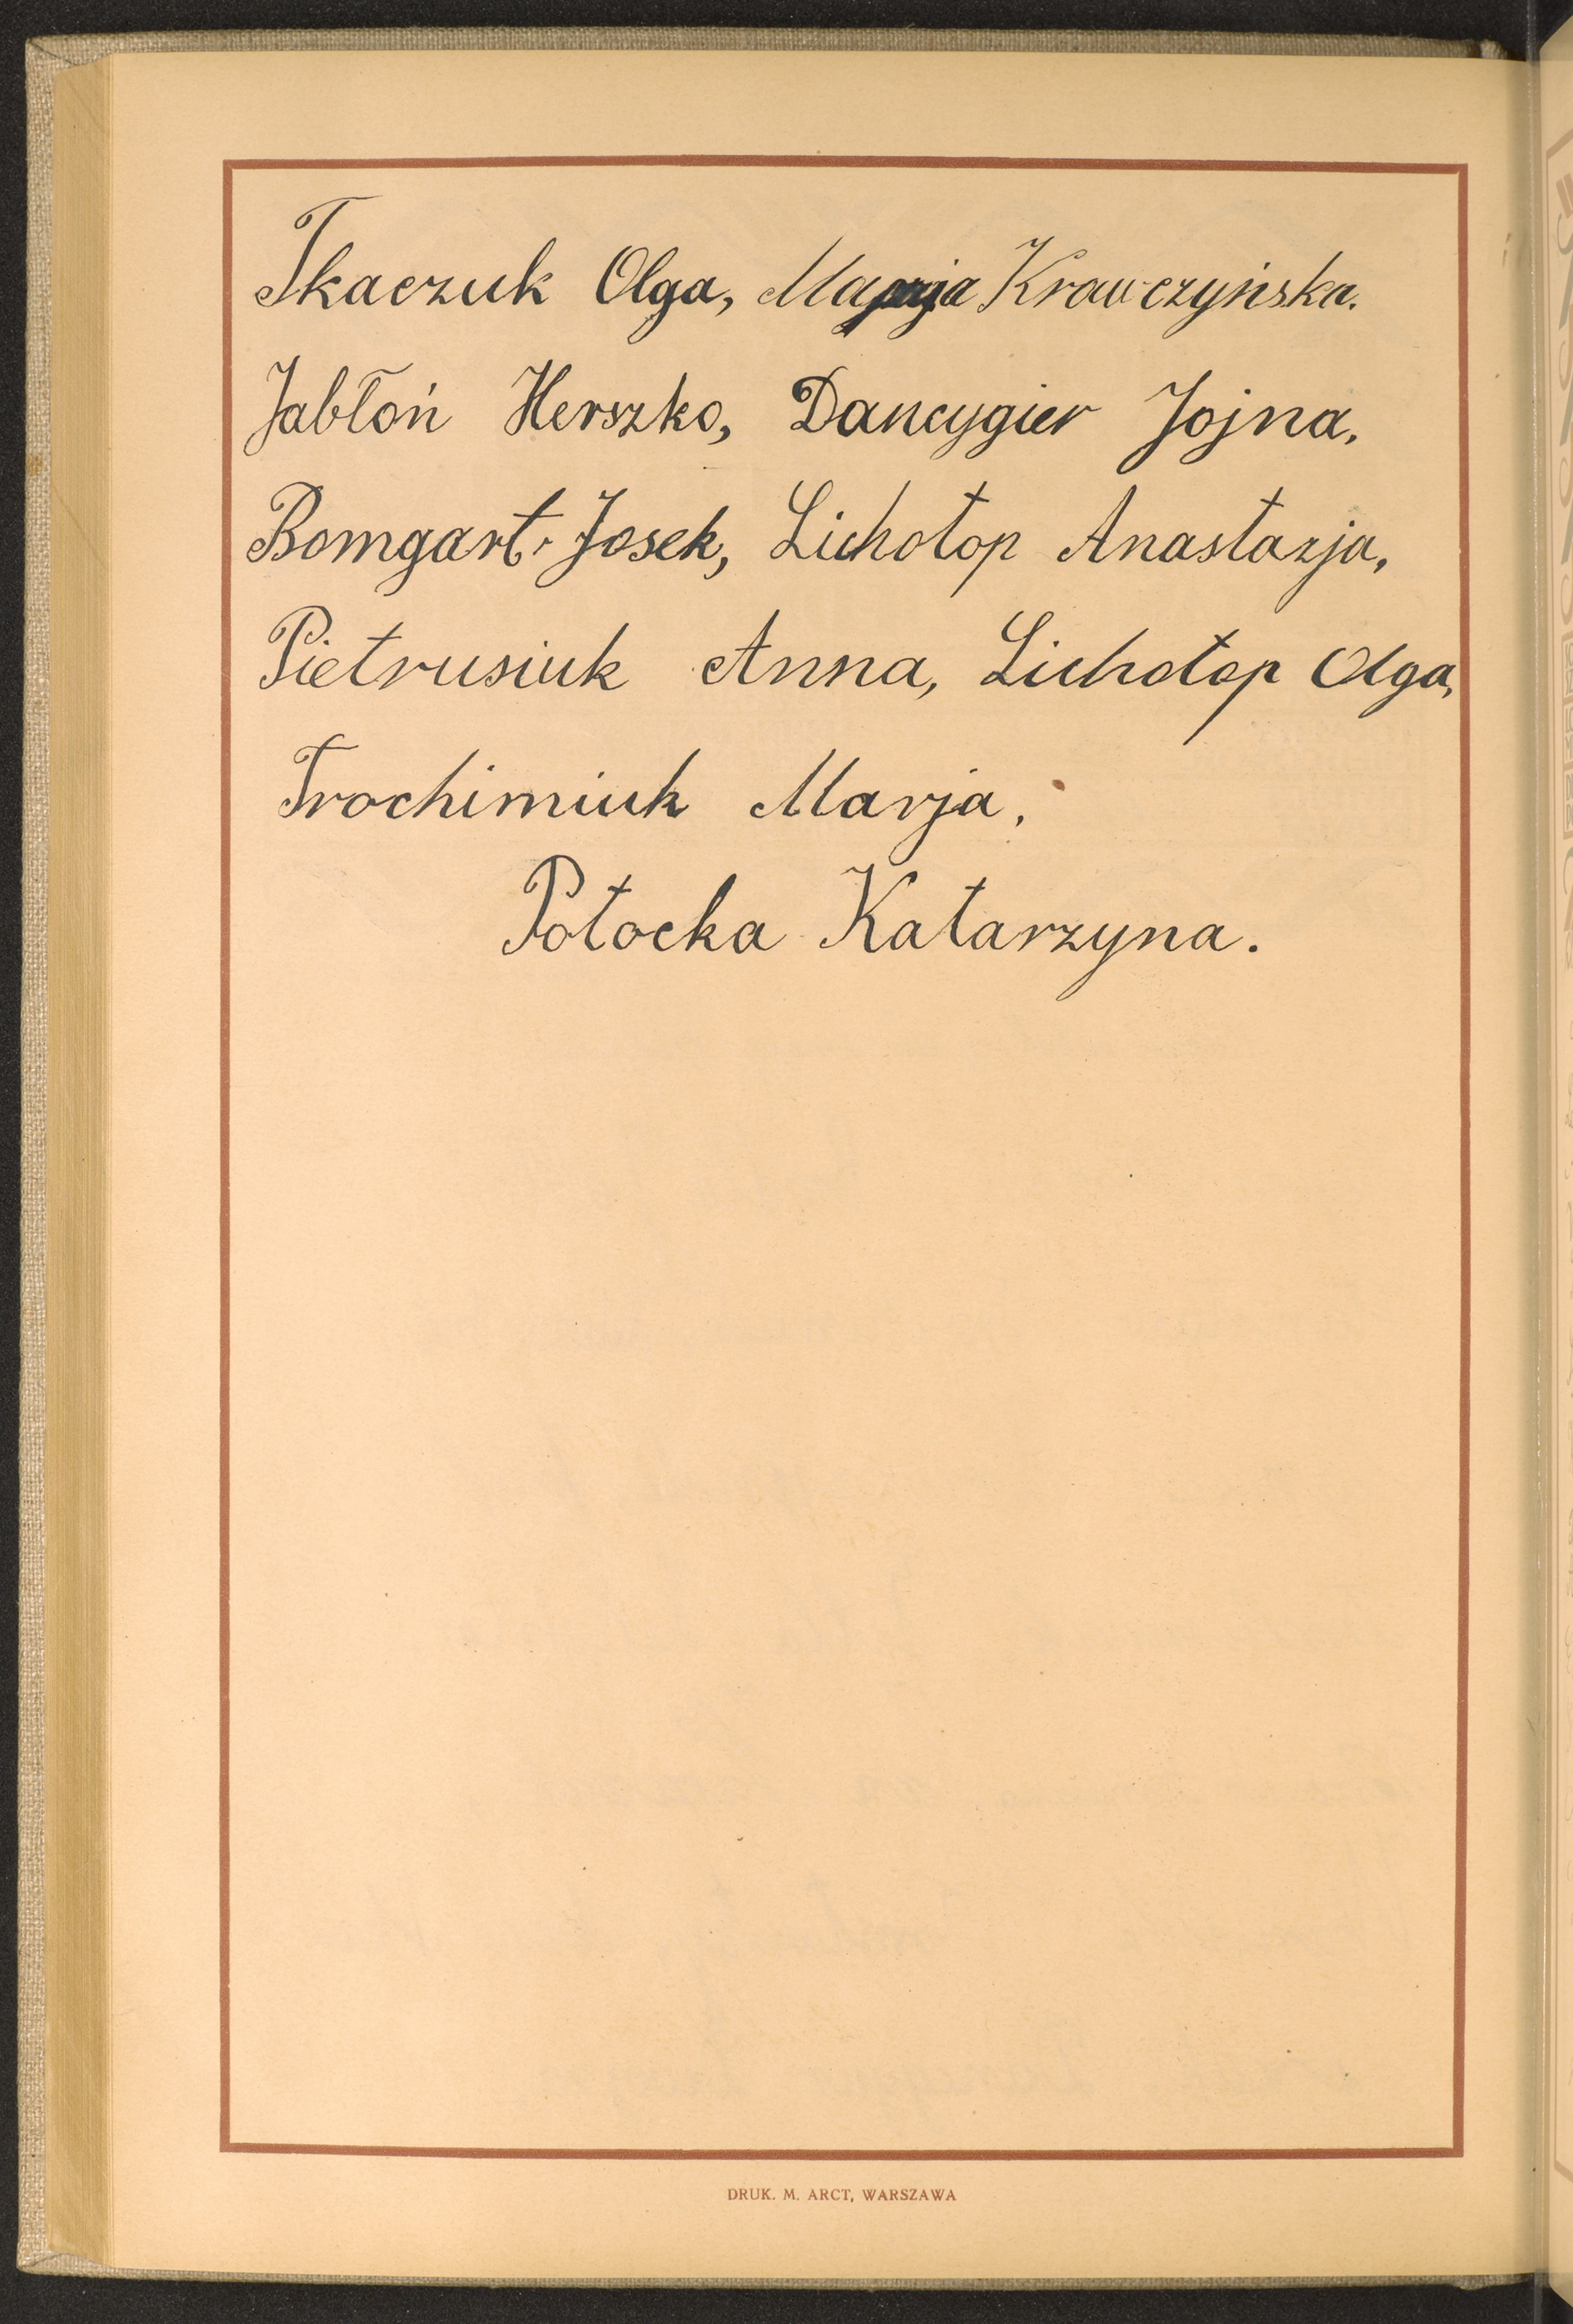 Tkaczuk Olga, Marja Krawczyńska.
Jabłoń Herszko, Dancygier Jojna,
Bomgart Josek, Lichotop Anastazja,
Pietrusiuk Anna, Lichotop Olga,
Trochimiuk Marja,
Potocka Katarzyna.
DRUK. M. ARCT, WARSZAWA